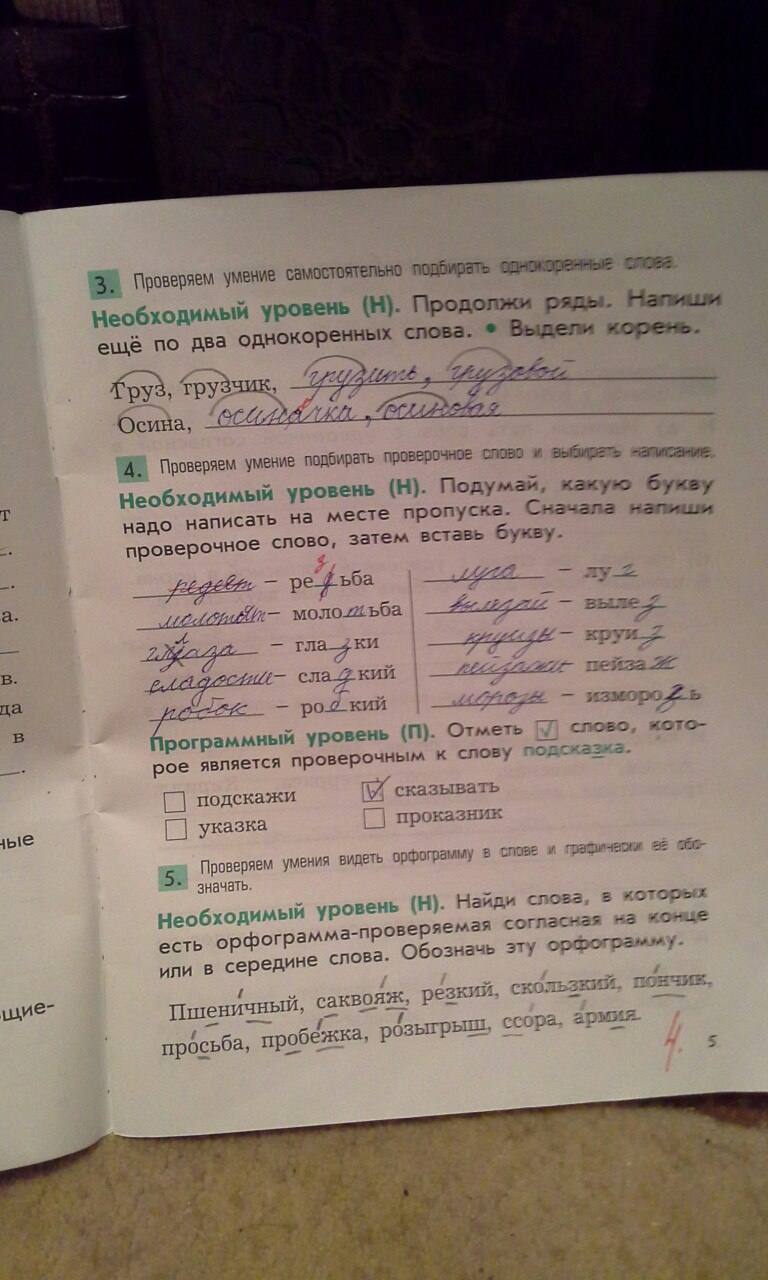 3. Проверяем умение самостоятельно подбирать однокоренные слова.
Необходимый уровень (Н). Продолжи ряды. Напиши
ещё по два однокоренных слова. • Выдели корень.
Груз, грузчик, грузить, грузовой
Осина, осиначка, осиновая
4. Проверяем умение подбирать проверочное слово и выбирать написание.
Необходимый уровень (Н). Подумай, какую букву
надо написать на месте пропуска. Сначала напиши
проверочное слово, затем вставь букву.
редеет – редьба з луга – луг
молотят – молотьба вылезай – вылез
глаза – глазки круизы – круиз
сладости – сладкий пейзажи – пейзаж
робок – робкий морозы – изморозь
Программный уровень (П). Отметь ☑ слово, кото-
рое является проверочным к слову подсказка.
☐ подскажи ☑ сказывать
☐ указка ☐ проказник
5. Проверяем умения видеть орфограмму в слове и графически её обо-
значать.
Необходимый уровень (Н). Найди слова, в которых
есть орфограмма-проверяемая согласная на конце
или в середине слова. Обозначь эту орфограмму.
Пшеничный, саквояж, резкий, скользкий, пончик,
просьба, пробежка, розыгрыш, ссора, армия.
4.
5
т
.
.
а.
в.
да
в
.
ные
щие-